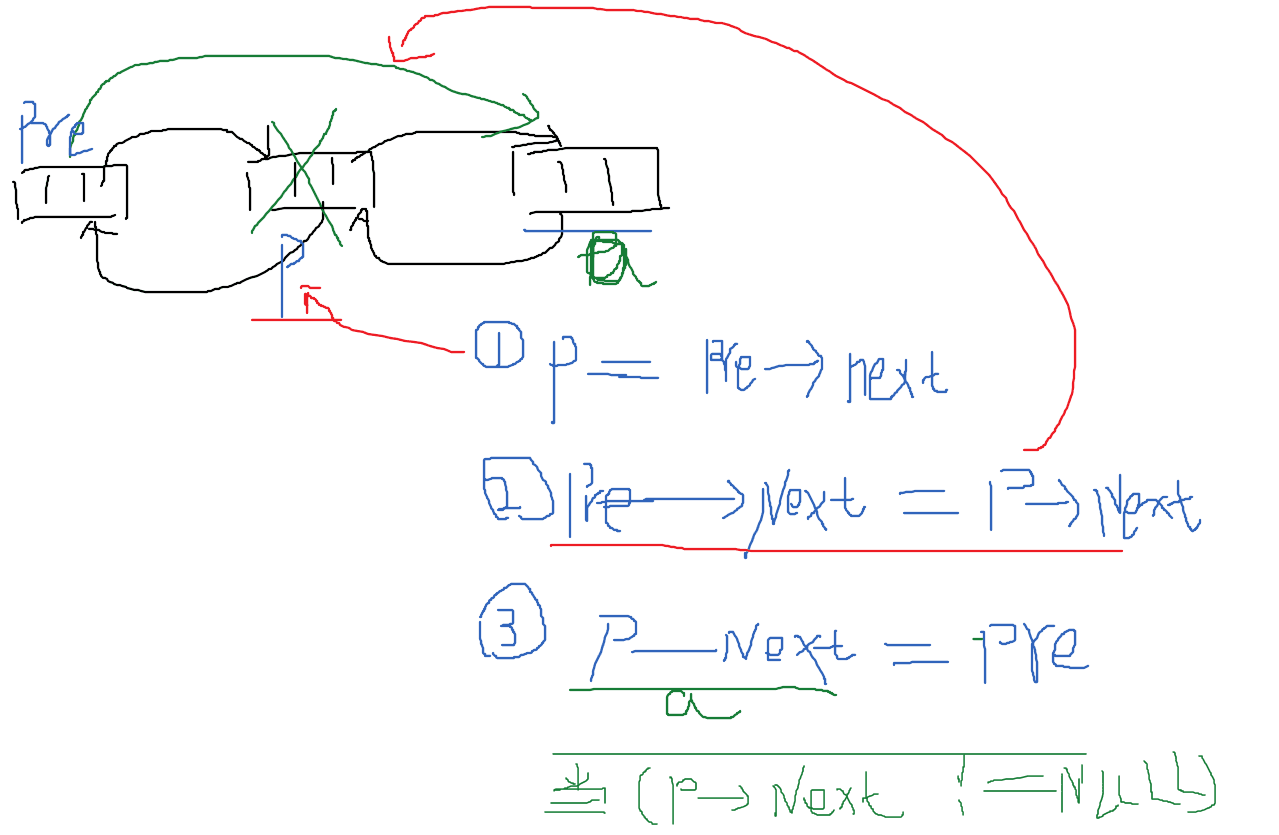 Pre
P
a
① P = Pre → next
② Pre → Next = P → Next
③ P — Next = Pre
a
(P → Next != NULL)